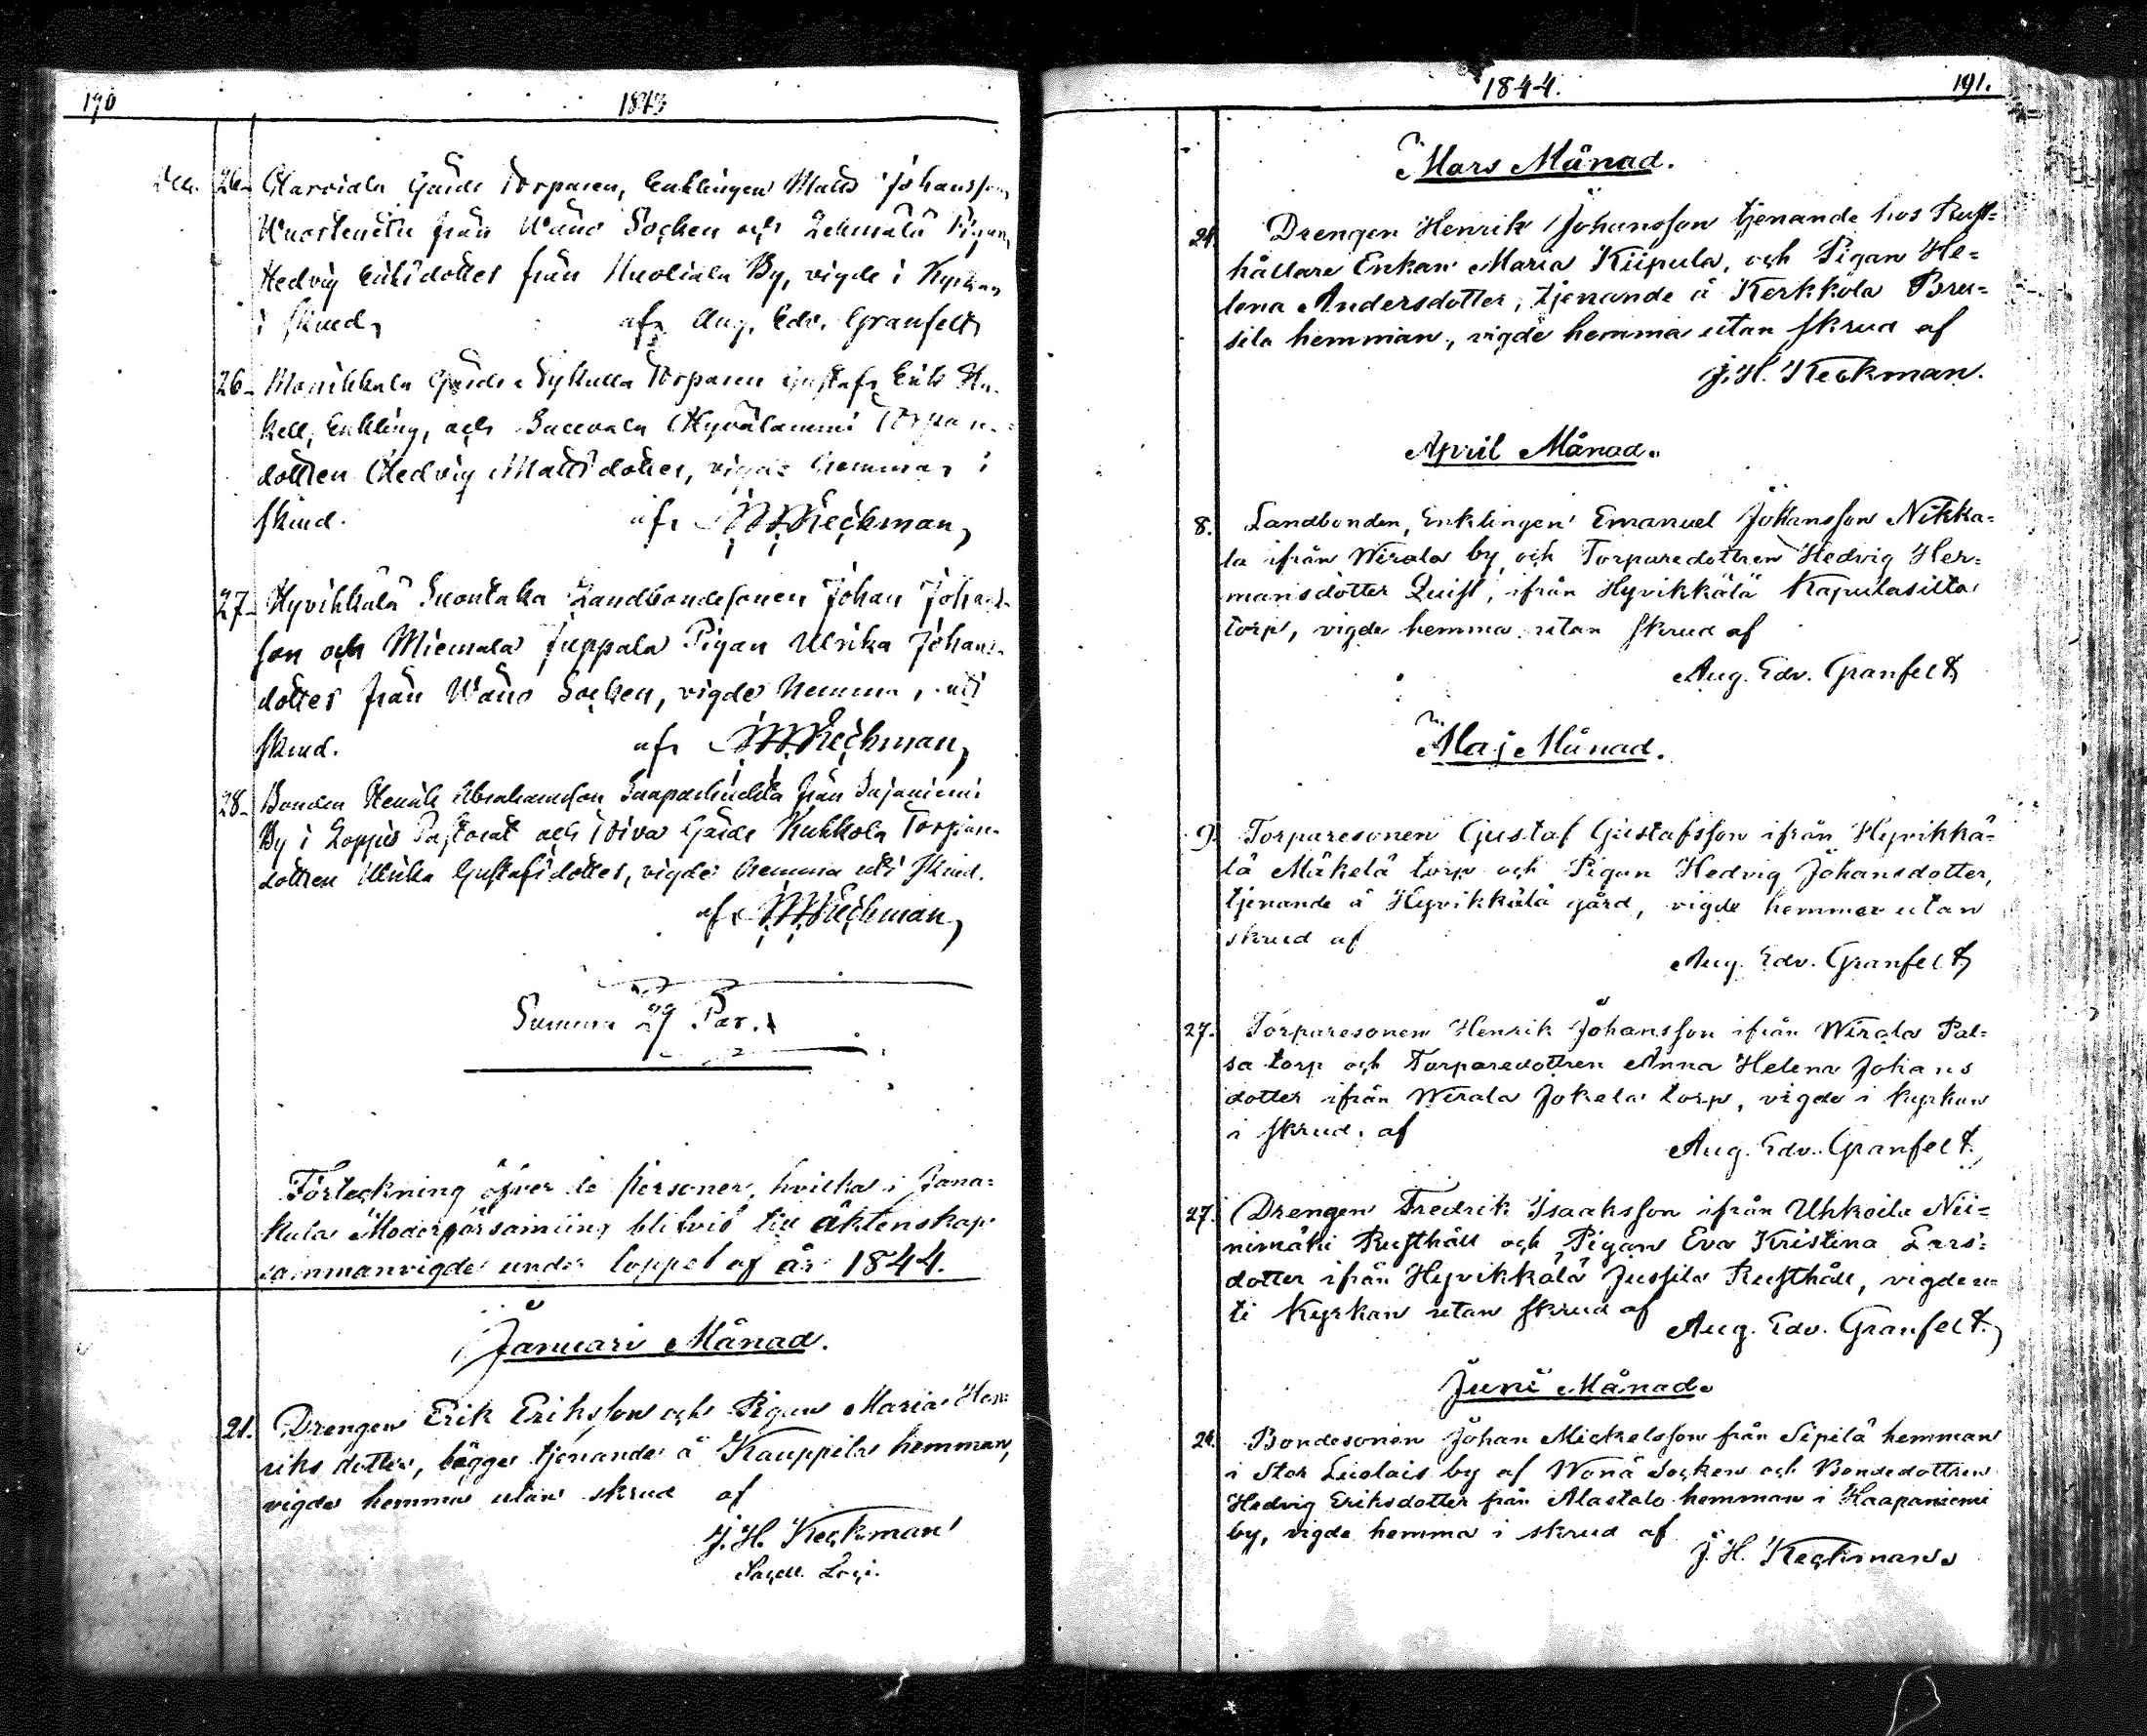 190 1843
Dec. 26. Harviala Gårds Torparen, Enklingen Matts Johansson
från Wånå Socken och Pigan
Hedvig Eriksdotter från Huoliala By, vigde i Kyrkan
i skrud, af Aug. Edv. Granfelt
26. Monikkala Gårds Torparen Gustaf Erik
Enkling, och Torpare
dottren Hedvig Mattsdotter, vigde hemma i
skrud. af Keckman
27. Hyvikkälä Suontaka Landbondesonen Johan Johans
son och Miemala Juppala Pigan Ulrika Johans
dotter från Wånå Socken, vigde hemma, uti
skrud. af Keckman
28. Bonden Henrik Abrahamsson från Sajaniemi
By i Loppis Pastorat och Gårds Kukkola Torpare
dottren Ulrika Gustafsdotter, vigde hemma uti skrud.
af Keckman
Summa 29 Par.
Förteckning öfver de personer, hvilka i Jana=
kala Moderförsamling blifvit till äktenskap
sammanvigde under loppet af år 1844.
Januari Månad.
21. Drengen Erik Eriksson och Pigan Maria Hen=
riks dotter, bägge tjenande å Kauppila hemman,
vigde hemma utan skrud af
J. H. Keckman
1844. 191.
Mars Månad.
24. Drengen Henrik Johansson tjenande hos Rust=
hållare Enkan Maria Kiipula, och Pigan He=
lena Andersdotter, tjenande å Kerkkola Bru=
sila hemman, vigde hemma utan skrud af
J. H. Keckman.
April Månad.
8. Landbonden, Enklingen Emanuel Johansson Nikka=
la ifrån Wirala by, och Torparedottren Hedvig Her=
mansdotter Quist, ifrån Hyvikkälä Kapulasilta
torp, vigde hemma utan skrud af
Aug. Edv. Granfelt
Maj Månad.
9. Torparesonen Gustaf Gustafsson ifrån Hyvikkä=
lä Mäkelä torp och Pigan Hedvig Johansdotter,
tjenande å Hyvikkälä gård, vigde hemma utan
skrud af
Aug. Edv. Granfelt
27. Torparesonen Henrik Johansson ifrån Wirala Pal=
sa torp och Torparedottren Anna Helena Johans
dotter ifrån Wirala Jokela torp, vigde i kyrkan
i skrud. af
Aug. Edv. Granfelt.
27. Drengen Fredrik Isaaksson ifrån Uhkoila Nii=
nimäki Rusthåll och Pigan Eva Kristina Lars=
dotter ifrån Hyvikkälä Jussila Rusthåll, vigde u=
ti Kyrkan utan skrud af
Aug. Edv. Granfelt.
Juni Månad.
24. Bondesonen Johan Mickelsson från Sipilä hemman
i Stor Luolais by af Wånå Socken och Bondedottren
Hedvig Eriksdotter från Alastalo hemman i Haapaniemi
by, vigde hemma i skrud af
J. H. Keckman